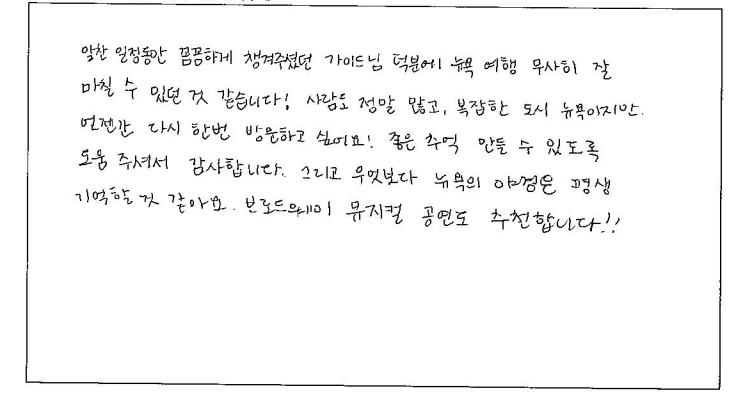 알찬 일정동안 꼼꼼하게 챙겨주셨던 가이드님 덕분에 뉴욕 여행 무사히 잘
마칠 수 있던 것 같습니다! 사람도 정말 많고, 복잡한 도시 뉴욕이지만.
언젠간 다시 한번 방문하고 싶어요! 좋은 추억 만들 수 있도록
도움 주셔서 감사합니다. 그리고 무엇보다 뉴욕의 야경은 평생
기억할 것 같아요. 브로드웨이 뮤지컬 공연도 추천합니다!!